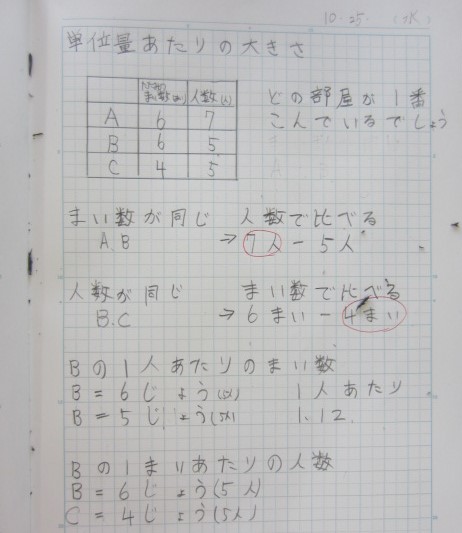 10.25. (水)
単位量あたりの大きさ
まい数(まい) 人数(人)
A 6 7
B 6 5
C 4 5
どの部屋が1番
こんでいるでしょう
まい数が同じ 人数で比べる
A.B → 7人－5人
人数が同じ まい数で比べる
B.C → 6まい－4まい
Bの1人あたりのまい数
B＝6じょう 1人あたり
B＝5じょう(5人) 1.12.
Bの1まいあたりの人数
B＝6じょう(5人)
C＝4じょう(5人)